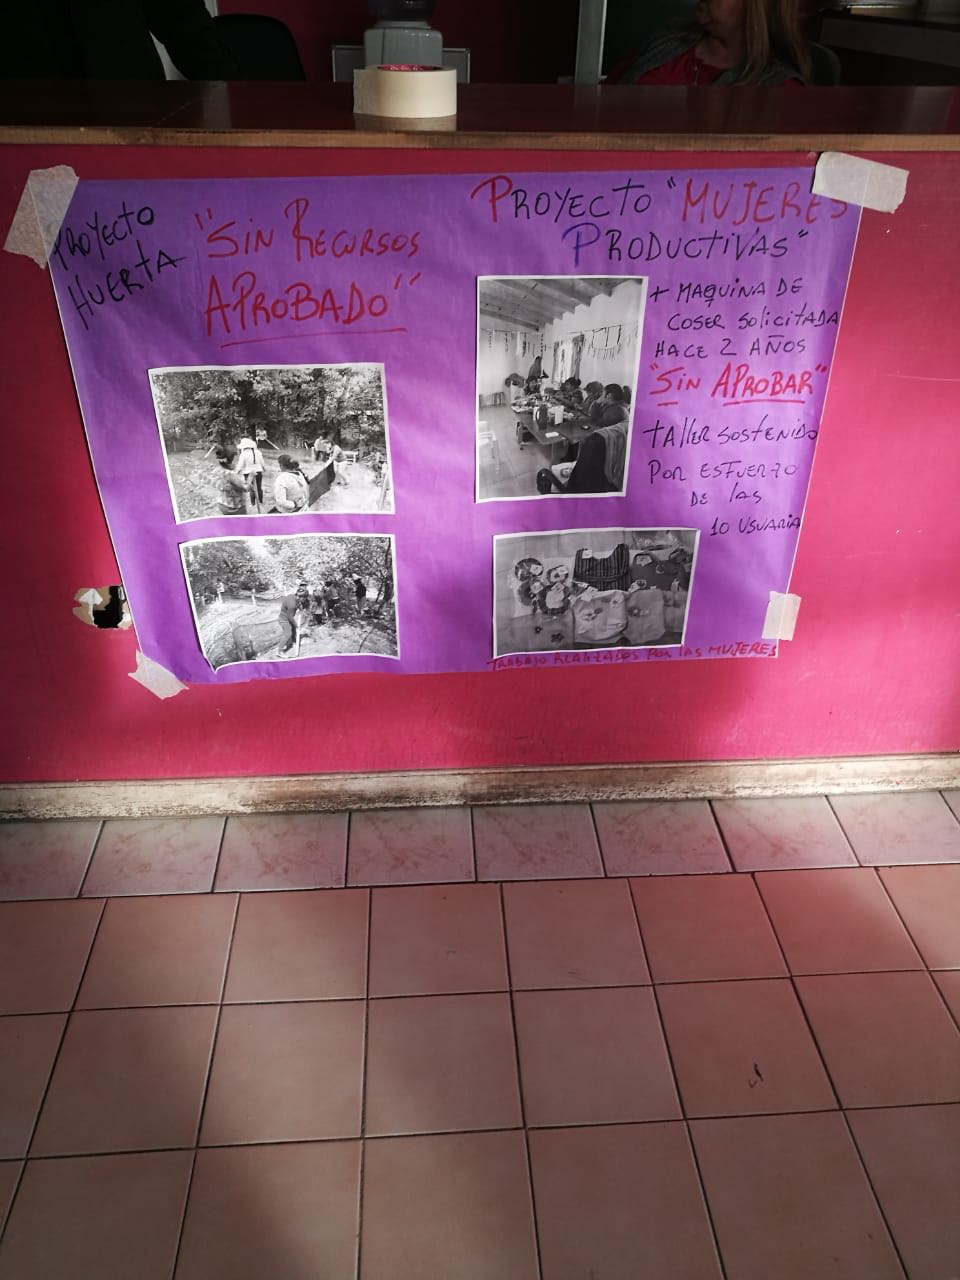 PROYECTO
HUERTA
"SIN RECURSOS
APROBADO"
PROYECTO "MUJERES
PRODUCTIVAS"
+ MAQUINA DE
COSER SOLICITADA
HACE 2 AÑOS
"SIN APROBAR"
TALLER SOSTENIDO
POR ESFUERZO
DE LAS
10 USUARIA
TRABAJO REALIZADOS POR LAS MUJERES